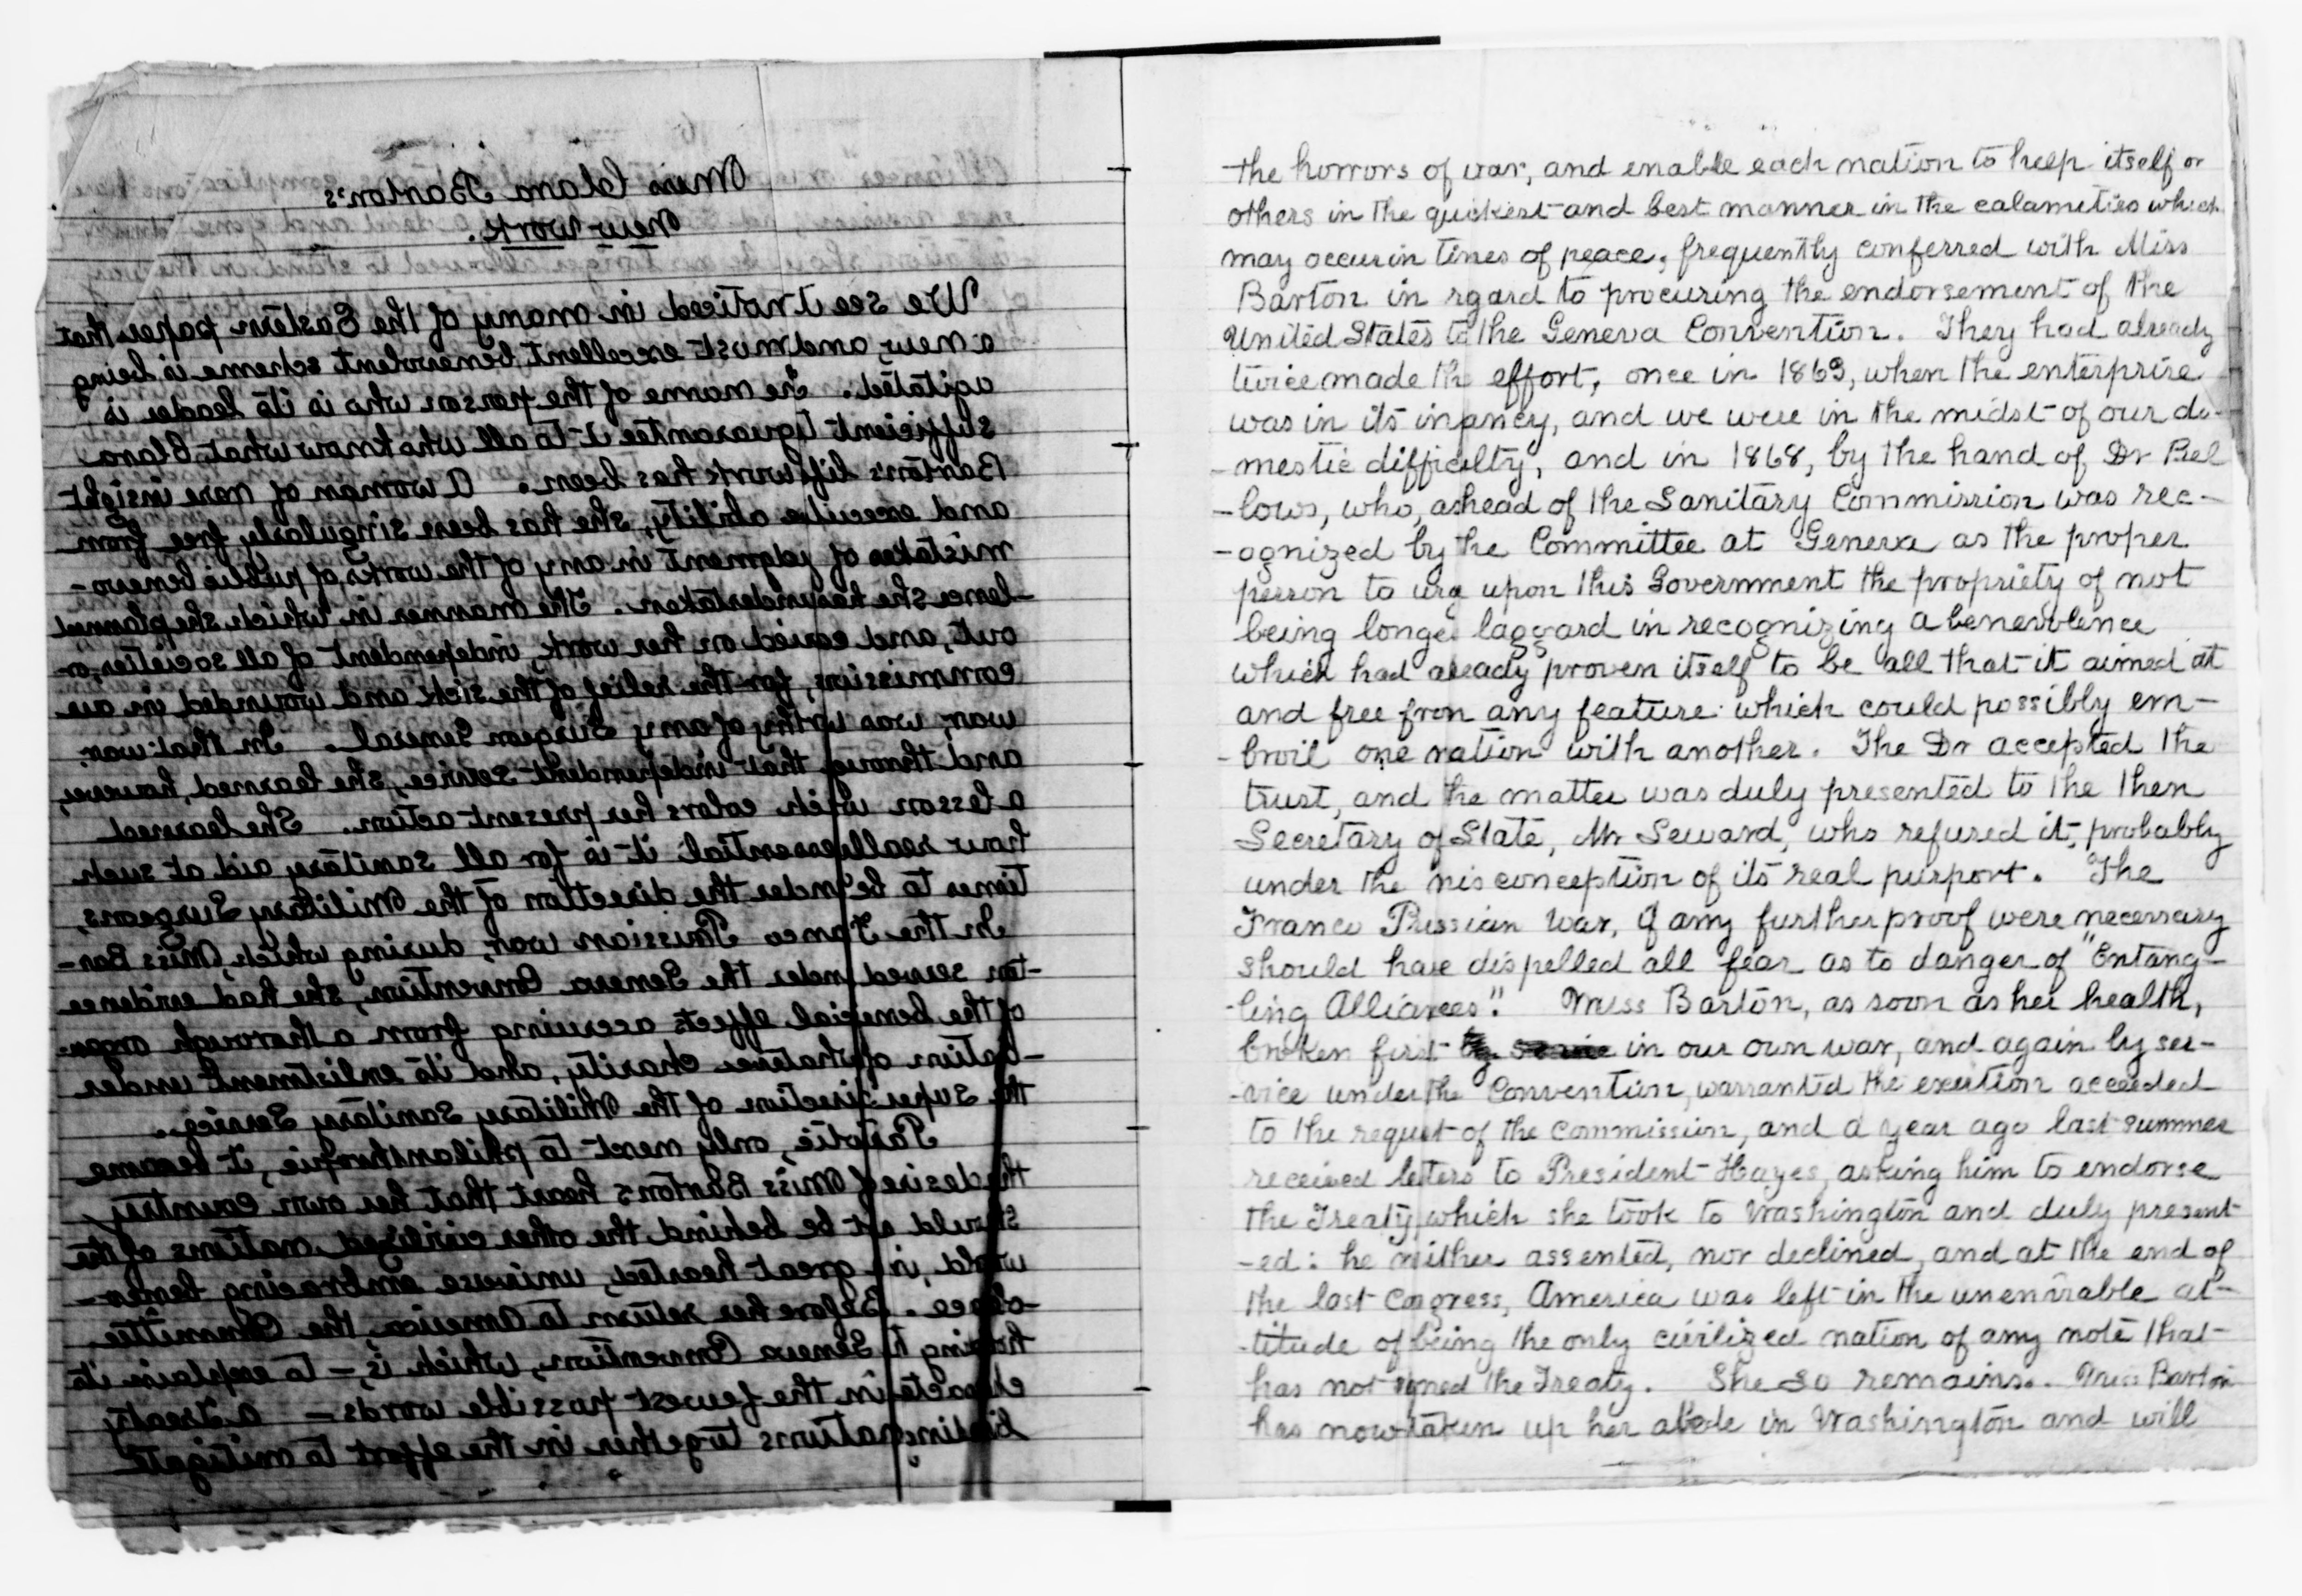 Miss Clara Barton's
New Work.
We see it noticed in many of the Eastern papers that
a new, and most excellent benevolent scheme is being
agitated. The name of the person who is its leader is
sufficient guarantee it to all who know what Clara
Barton's lifework has been. A woman of rare insight
and executive ability, she has been singularly free from
mistakes of judgment in any of the works of public benevo-
-lence she has undertaken. The manner in which she planned
out, and caried on her work, independent of all societies, or
commissions, for the relief of the sick and wounded in our
war, was worthy of any Surgeon General. In that war,
and through that independent service, she learned, however,
a lesson which colors her present action. She learned
how really essential it is for all sanitary aid at such
times to be under the direction of the Military Surgeons,
In the Franco Prussian war, during which, Miss Bar-
-ton served under the Geneva Convention, she had evidence
of the beneficial effects accruing from a thorough organ-
-ization of whatever charity, and its enlistment under
the supervision of the Military Sanitary Service.
Patriotic, only next to philanthropic, it became
the desire of Miss Barton's heart that her own country
should not be behind the other civilized nations of the
world, in great hearted, universe embracing benev-
-olence. Before her return to America, the Committee
having the Geneva Convention, which, is, — to explain its
character in the fewest possible words — a Treaty
binding nations together in the effort to mitigate
the horrors of war, and enable each nation to help itself or
others in the quickest and best manner in the calamities which
may occur in times of peace, frequently conferred with Miss
Barton in rgard to procuring the endorsement of the
United States to the Geneva Convention. They had already
twice made the effort, once in 1863, when the enterprise
was in its inpancy, and we were in the midst of our do-
-mestic difficulty, and in 1868, by the hand of Dr Bel
-lows, who, ashead of the Sanitary Commission was rec-
-ognized by the Committee at Geneva as the proper
person to urg upon this Government the propriety of not
being longer laggard in recognizing a benevolence
which had already proven itself to be all that it aimed at
and free fron any feature which could possibly em-
-broil one nation with another. The Dr accepted the
trust, and the matter was duly presented to the then
Secretary of State, Mr Seward, who refused it, probably
under the nisconception of its real purport. The
Franco Prussian War, if any further proof were necessary
should have dispelled all fear as to danger of "Entang-
-ling Alliances". Miss Barton, as soon as her health,
broken first in our own war, and again by ser-
-vice under the Convention, warranted the exertion acceeded
to the request of the Commission, and a year ago last summer
received letters to President Hayes, asking him to endorse
the Treaty, which she took to Washington and duly present-
-ed: he neither assented, nor declined, and at the end of
the last Congress, America was left in the unenviable at-
-titude of being the only civilized nation of any note that
has not signed the Treaty. She so remains. Miss Barton
has now taken up her abode in Washington and will